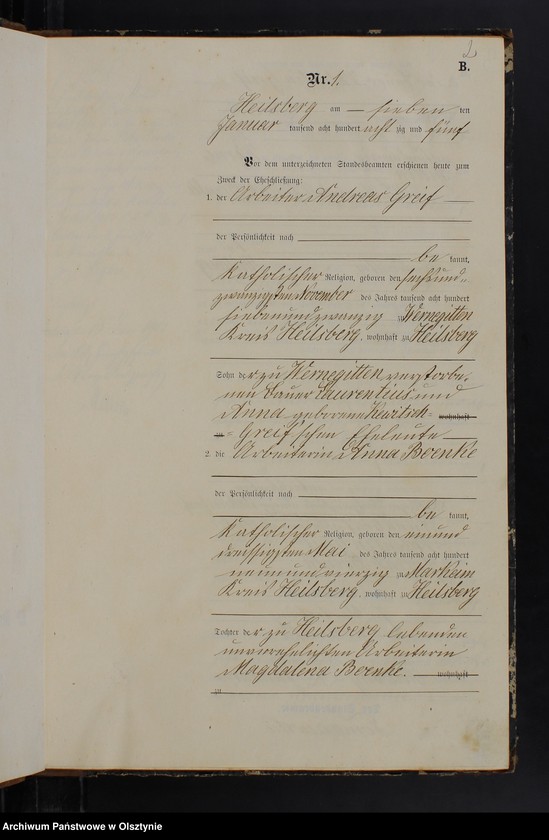 2
B.
Nr. 1.
Heilsberg am — sieben ten
Januar tausend acht hundert acht zig und fünf
Vor dem unterzeichneten Standesbeamten erschienen heute zum
Zweck der Eheschließung:
1. der Arbeiter Andreas Greif —
der Persönlichkeit nach
be kannt,
katholischer Religion, geboren den sechsund-
zwanzigsten November des Jahres tausend acht hundert
siebenundzwanzig zu Wernegitten
Kreis Heilsberg, wohnhaft zu Heilsberg
Sohn der zu Wernegitten verstorbe-
nen Bauer Laurentius und
Anna geborene Kewitsch- wohnhaft
zu - Greif'schen Eheleute —
2. die Arbeiterin Anna Boenke
der Persönlichkeit nach
be kannt,
katholischer Religion, geboren den einund
dreissigsten Mai des Jahres tausend acht hundert
neunundvierzig zu Markeim
Kreis Heilsberg, wohnhaft zu Heilsberg
Tochter der zu Heilsberg lebenden
unverehelichten Arbeiterin
Magdalena Boenke. — wohnhaft
zu
Archiwum Państwowe w Olsztynie